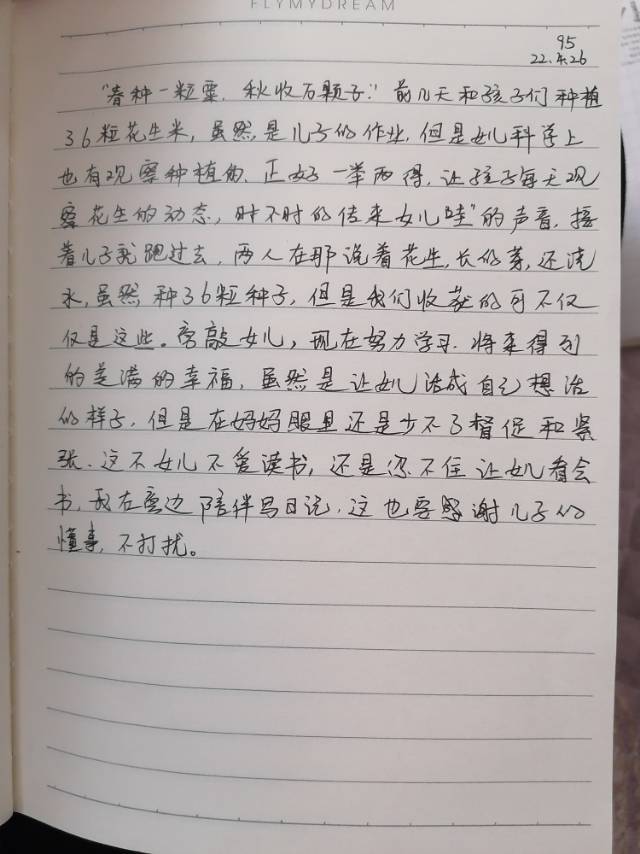 FLYMYDREAM
95
22.4.26
"春种一粒粟，秋收万颗子."前几天和孩子们种植
36粒花生米，虽然是儿子的作业，但是女儿科学上
也有观察种植的，正好一举两得，让孩子每天观
察花生的动态，时不时的传来女儿"哇"的声音，接
着儿子就跑过去，两人在那说着花生，长的芽，还浇
水，虽然种36粒种子，但是我们收获的可不仅
仅是这些。旁敲女儿，现在努力学习，将来得到
的美满的幸福，虽然是让女儿活成自己想活
的样子，但是在妈妈眼里还是少不了督促和紧
张，这不女儿不爱读书，还是忍不住让女儿看会
书，我在旁边陪伴写日记，这也要感谢儿子的
懂事，不打扰。